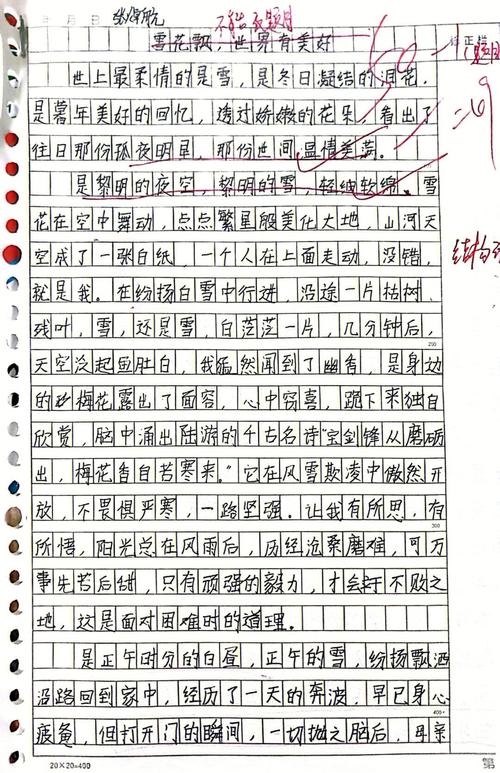 月 日
不能改题目
雪花飘,世界有美好
世上最柔情的是雪,是冬日凝结的泪花,
是暮年美好的回忆,透过娇嫩的花朵,看出了
往日那份孤夜明星,那份世间温情美满。
是黎明的夜空,黎明的雪,轻绒软绵。雪
花在空中舞动,点点繁星般美化大地,山河天
空成了一张白纸,一个人在上面走动,没错,
就是我。在纷扬白雪中行进,沿途一片枯树
残叶,雪,还是雪,白茫茫一片,几分钟后,
200
天空泛起鱼肚白,我猛然闻到了幽香,是身边
的梅花露出了面容,心中窃喜,跪下来独自
欣赏,脑中涌出陆游的千古名诗“宝剑锋从磨砺
出,梅花香自苦寒来。”它在风雪欺凌中傲然开
放,不畏惧严寒,一路坚强。让我有所思,有
300
所悟,阳光总在风雨后,历经沧桑磨难,可万
事先苦后甜,只有顽强的毅力,才会于不败之
地,这是面对困难时的道理。
是正午时分的白昼,正午的雪,纷扬飘洒
沿路回到家中,经历了一天的奔波,早已身心
400
疲惫,但打开门的瞬间,一切抛之脑后,母亲
20×20=400
第